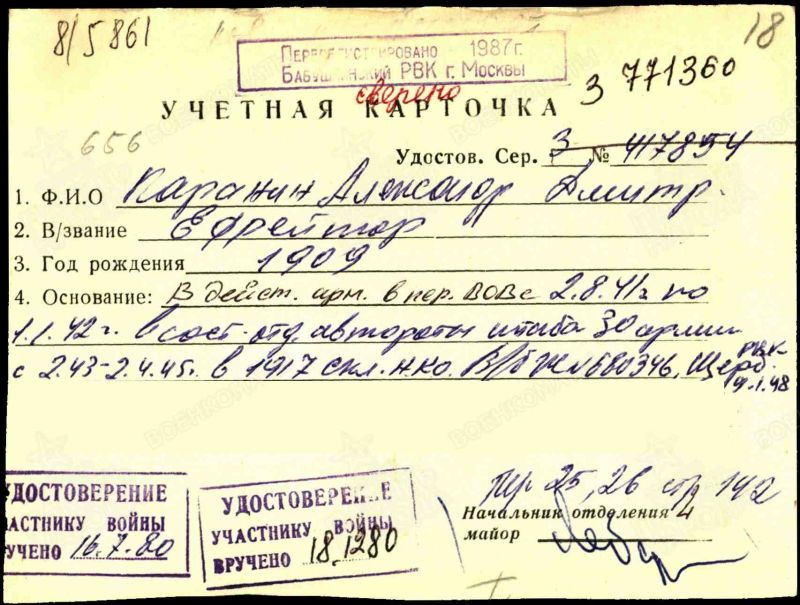 8/5861
18
Перерегистрировано 1987г.
Бабушкинский РВК г. Москвы
сверено
УЧЕТНАЯ КАРТОЧКА
З 771360
656
Удостов. Сер. З № 417854
1. Ф.И.О Каранин Александр Дмитр.
2. В/звание Ефрейтор
3. Год рождения 1909
4. Основание: В дейст. арм. в пер. ВОВ с 2.8.41г по
1.1.42 г. в сост. отд. автороты штаба 30 армии
с 2.43-2.4.45г. в 1917 скл. НКО. В/б Ж № 680346, Щерб. РВК
9.1.48
УДОСТОВЕРЕНИЕ
УЧАСТНИКУ ВОЙНЫ
ВРУЧЕНО 16.7.80
УДОСТОВЕРЕНИЕ
УЧАСТНИКУ ВОЙНЫ
ВРУЧЕНО 18.12 80
пр. 25, 26 стр 142
Начальник отделения 4
майор